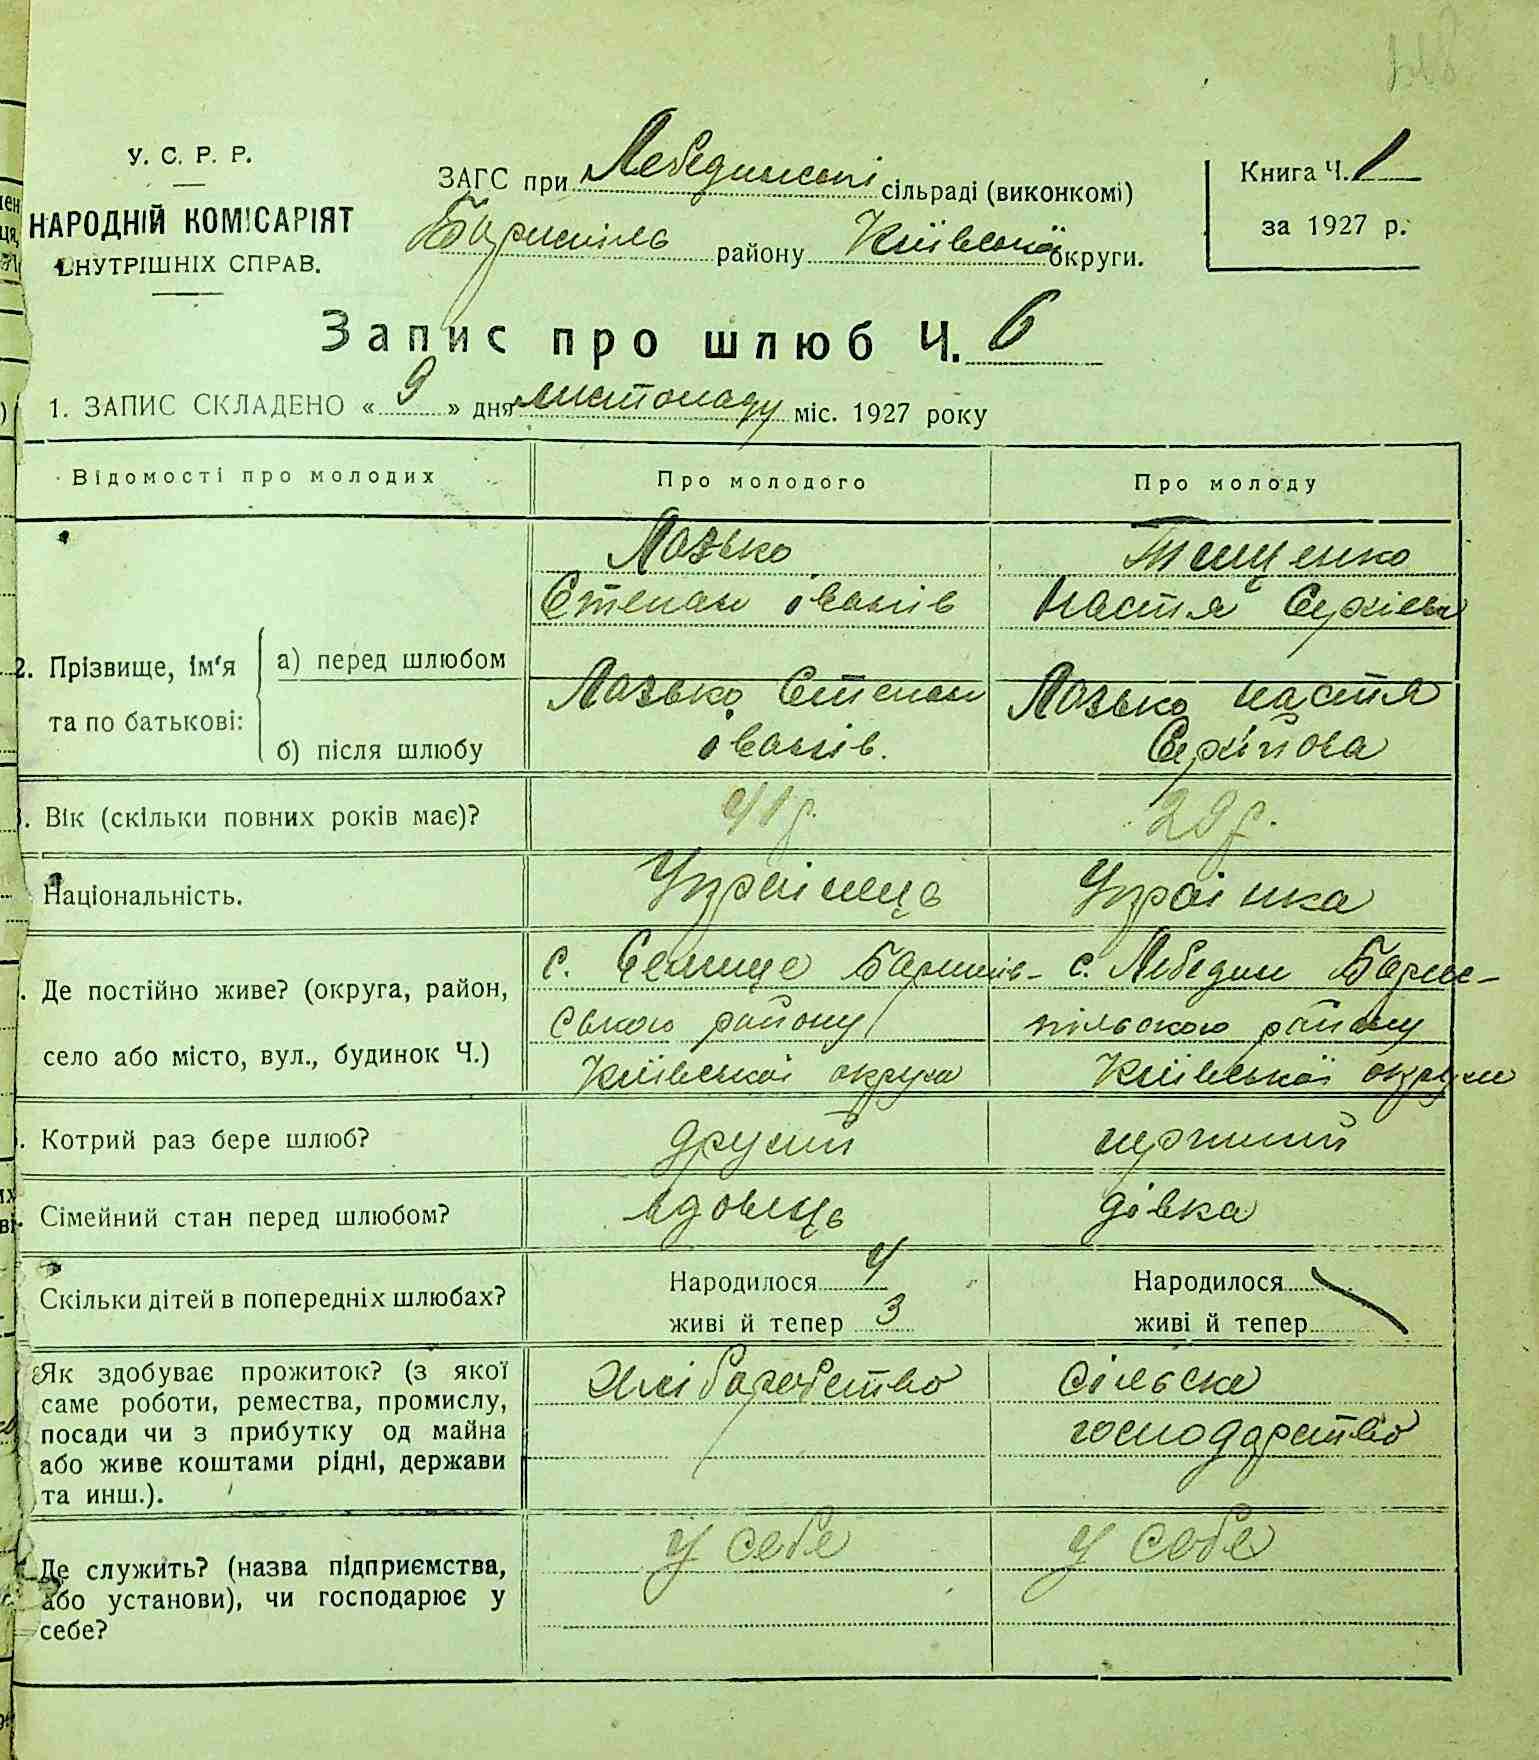 У. С. Р. Р.
НАРОДНІЙ КОМІСАРІЯТ
ВНУТРІШНІХ СПРАВ.
ЗАГС при Лебединські сільраді (виконкомі)
Бориспіль району Київської округи.
Книга Ч. 1
за 1927 р.
Запис про шлюб Ч. 6
1. ЗАПИС СКЛАДЕНО « 9 » дня листопаду міс. 1927 року
Відомості про молодих Про молодого Про молоду
Лазько Тищенко
Степан іванів Настя
2. Прізвище, ім'я та по батькові:
а) перед шлюбом
б) після шлюбу
Лазько Степан Лазько настя
іванів. Сергійова
. Вік (скільки повних років має)? 41 р. 29 р.
Національність. Українець Українка
. Де постійно живе? (округа, район,
село або місто, вул., будинок Ч.)
с. Селище Баришів- с. Лебедин Борис-
ського району пільского району
Київської округи Київської округи
. Котрий раз бере шлюб? другий перший
. Сімейний стан перед шлюбом? вдовець дівка
Скільки дітей в попередніх шлюбах? Народилося 4 Народилося
живі й тепер 3 живі й тепер
Як здобуває прожиток? (з якої
саме роботи, ремества, промислу,
посади чи з прибутку од майна
або живе коштами рідні, держави
та инш.).
хліборобство сільске
господарство
Де служить? (назва підприємства,
або установи), чи господарює у
себе?
у себе у себе